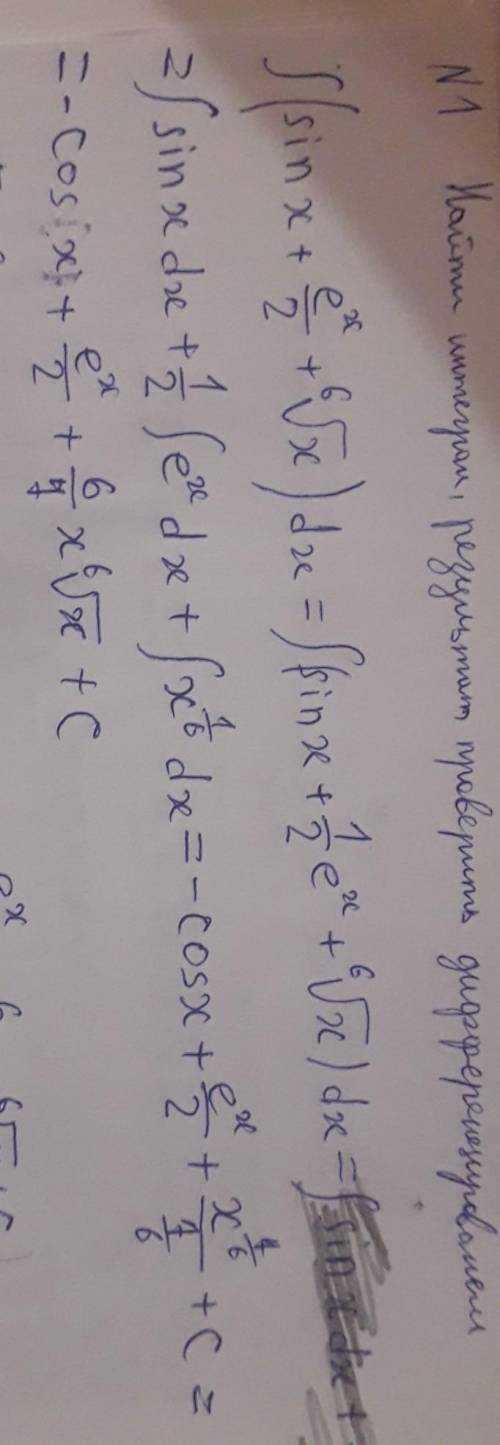 N1 Найти интеграл, результат проверить дифференцированием
∫(sin x + e^x/2 + ⁶√x) dx = ∫(sin x + 1/2 e^x + ⁶√x) dx = ∫ sin x dx +
= ∫ sin x dx + 1/2 ∫ e^x dx + ∫ x^(1/6) dx = - cos x + e^x/2 + x^(7/6)/(7/6) + C =
= - cos(x) + e^x/2 + 6/7 x ⁶√x + C